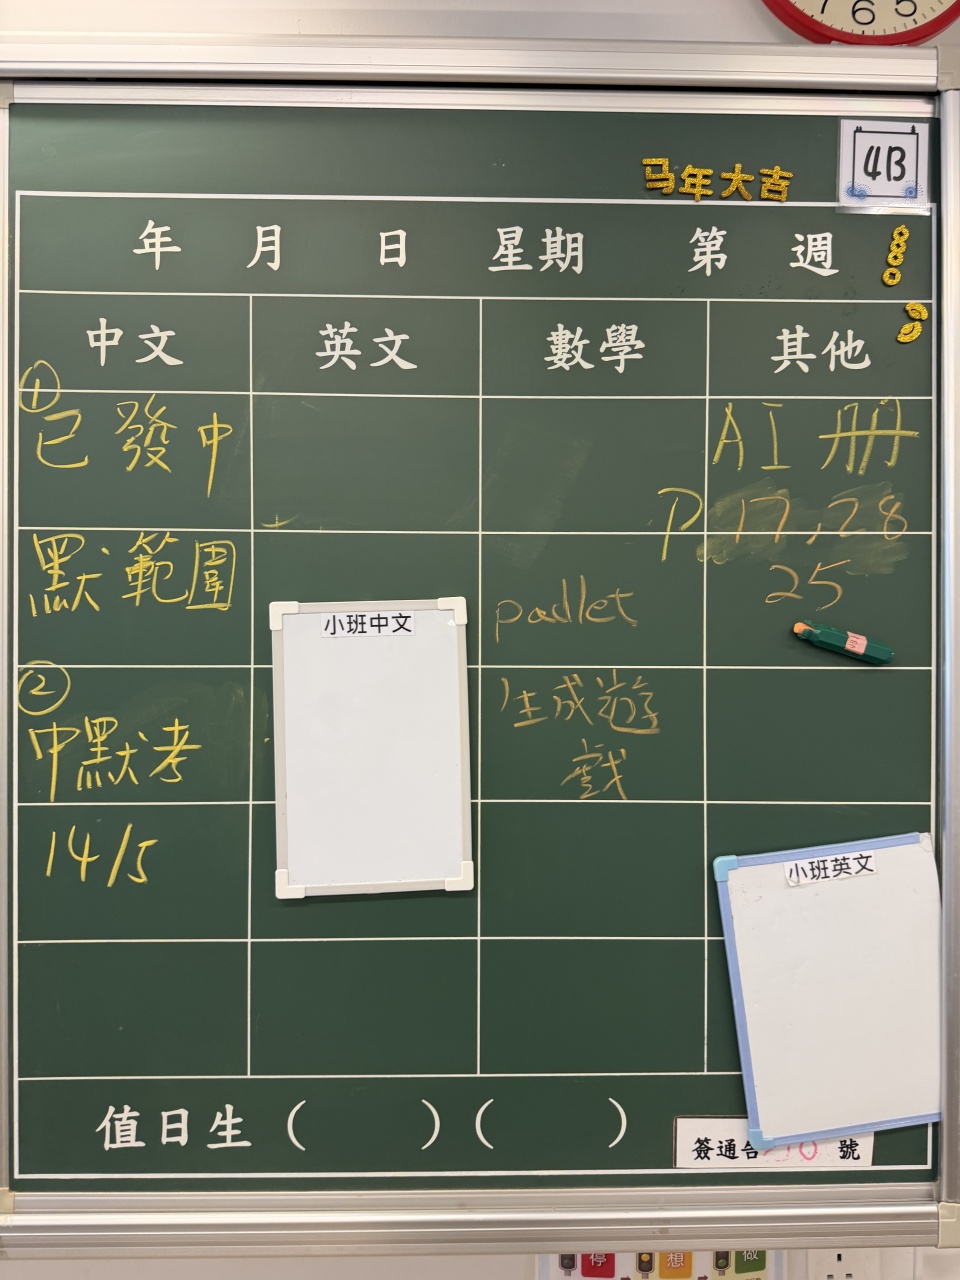 6 5
4B
马年大吉
年 月 日 星期 第 週
中文 英文 數學 其他
①
已發中
默範圍
②
中默考
14/5
小班中文
padlet
生成遊
戲
AI 冊
P.17,28
25
小班英文
值日生（ ）（ ）
簽通告 號
停 想 做